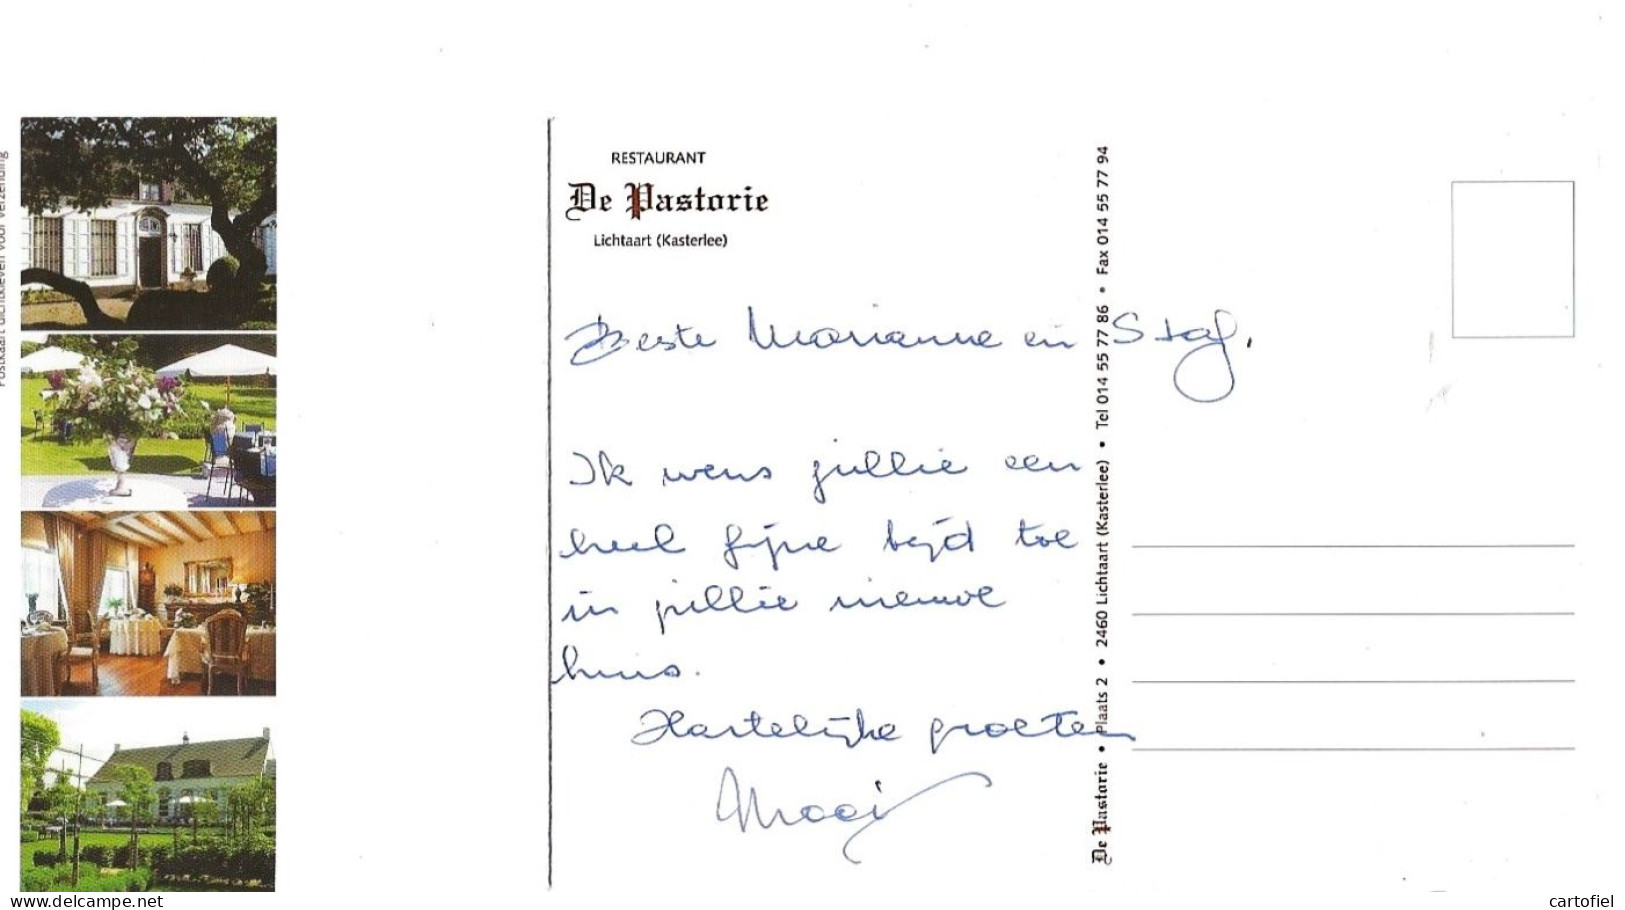 Postkaart dichtkleven voor verzending
RESTAURANT
De Pastorie
Lichtaart (Kasterlee)
Beste Marianne en Staf,
Ik wens jullie een
heel fijne tijd toe
in jullie nieuwe
huis.
Hartelijke groeten
De Pastorie • Plaats 2 • 2460 Lichtaart (Kasterlee) • Tel 014 55 77 86 • Fax 014 55 77 94
www.delcampe.net
cartofiel